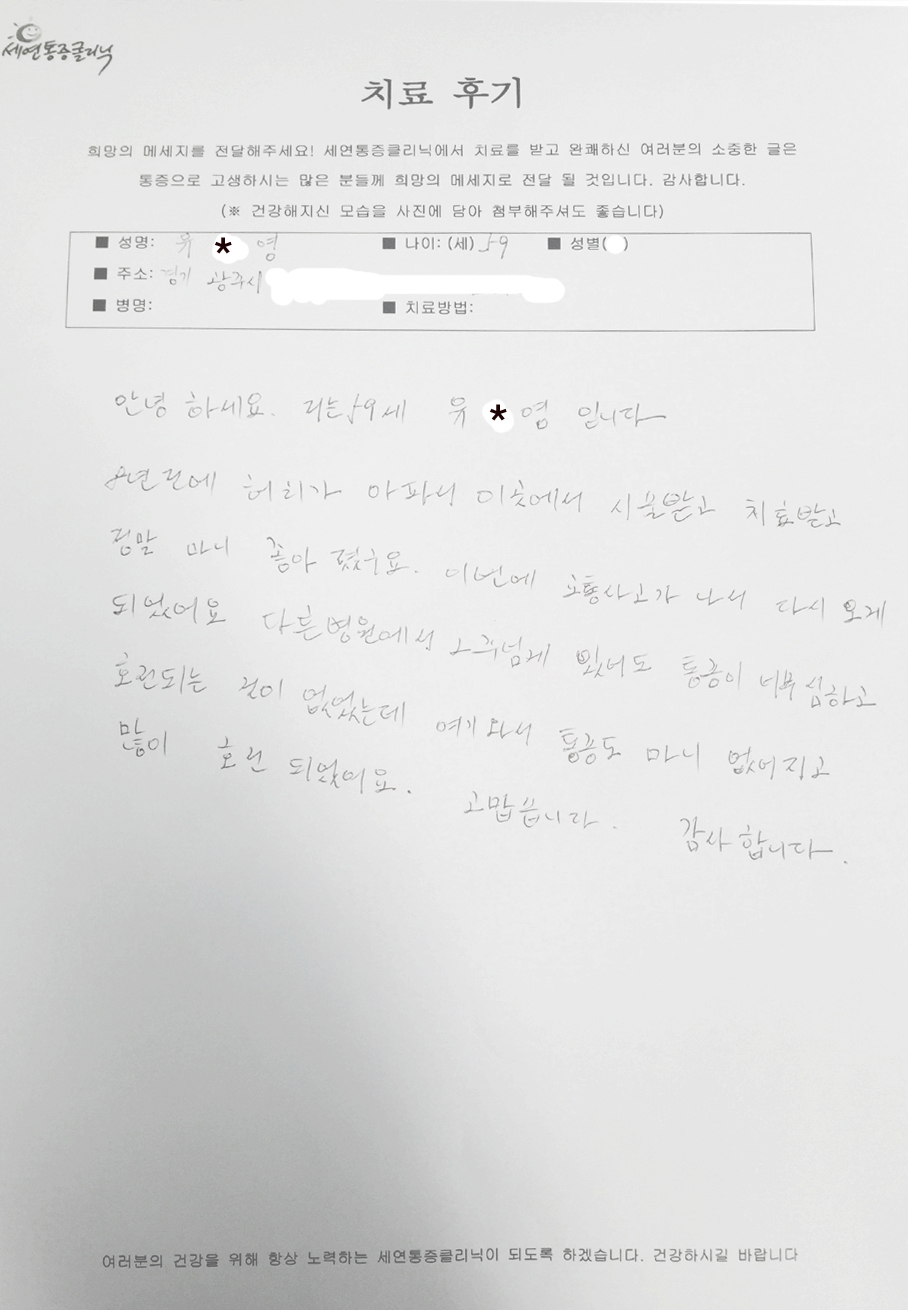 세연통증클리닉
치료 후기
희망의 메세지를 전달해주세요! 세연통증클리닉에서 치료를 받고 완쾌하신 여러분의 소중한 글은
통증으로 고생하시는 많은 분들께 희망의 메세지로 전달 될 것입니다. 감사합니다.
(※ 건강해지신 모습을 사진에 담아 첨부해주셔도 좋습니다)
■ 성명: 유 * 영 ■ 나이: (세) 59 ■ 성별( )
■ 주소: 경기 광주시
■ 병명: ■ 치료방법:
안녕 하세요. 저는 59세 유 * 영 입니다
8년전에 허리가 아파서 이곳에서 시술받고 치료받고
정말 마니 좋아 졌구요. 이번에 교통사고가 나서 다시 오게
되었어요 다른병원에서 2주넘게 있어도 통증이 너무 심하고
호전되는 것이 없었는데 여기 와서 통증도 마니 없어지고
많이 호전 되었어요. 고맙습니다. 감사합니다.
여러분의 건강을 위해 항상 노력하는 세연통증클리닉이 되도록 하겠습니다. 건강하시길 바랍니다